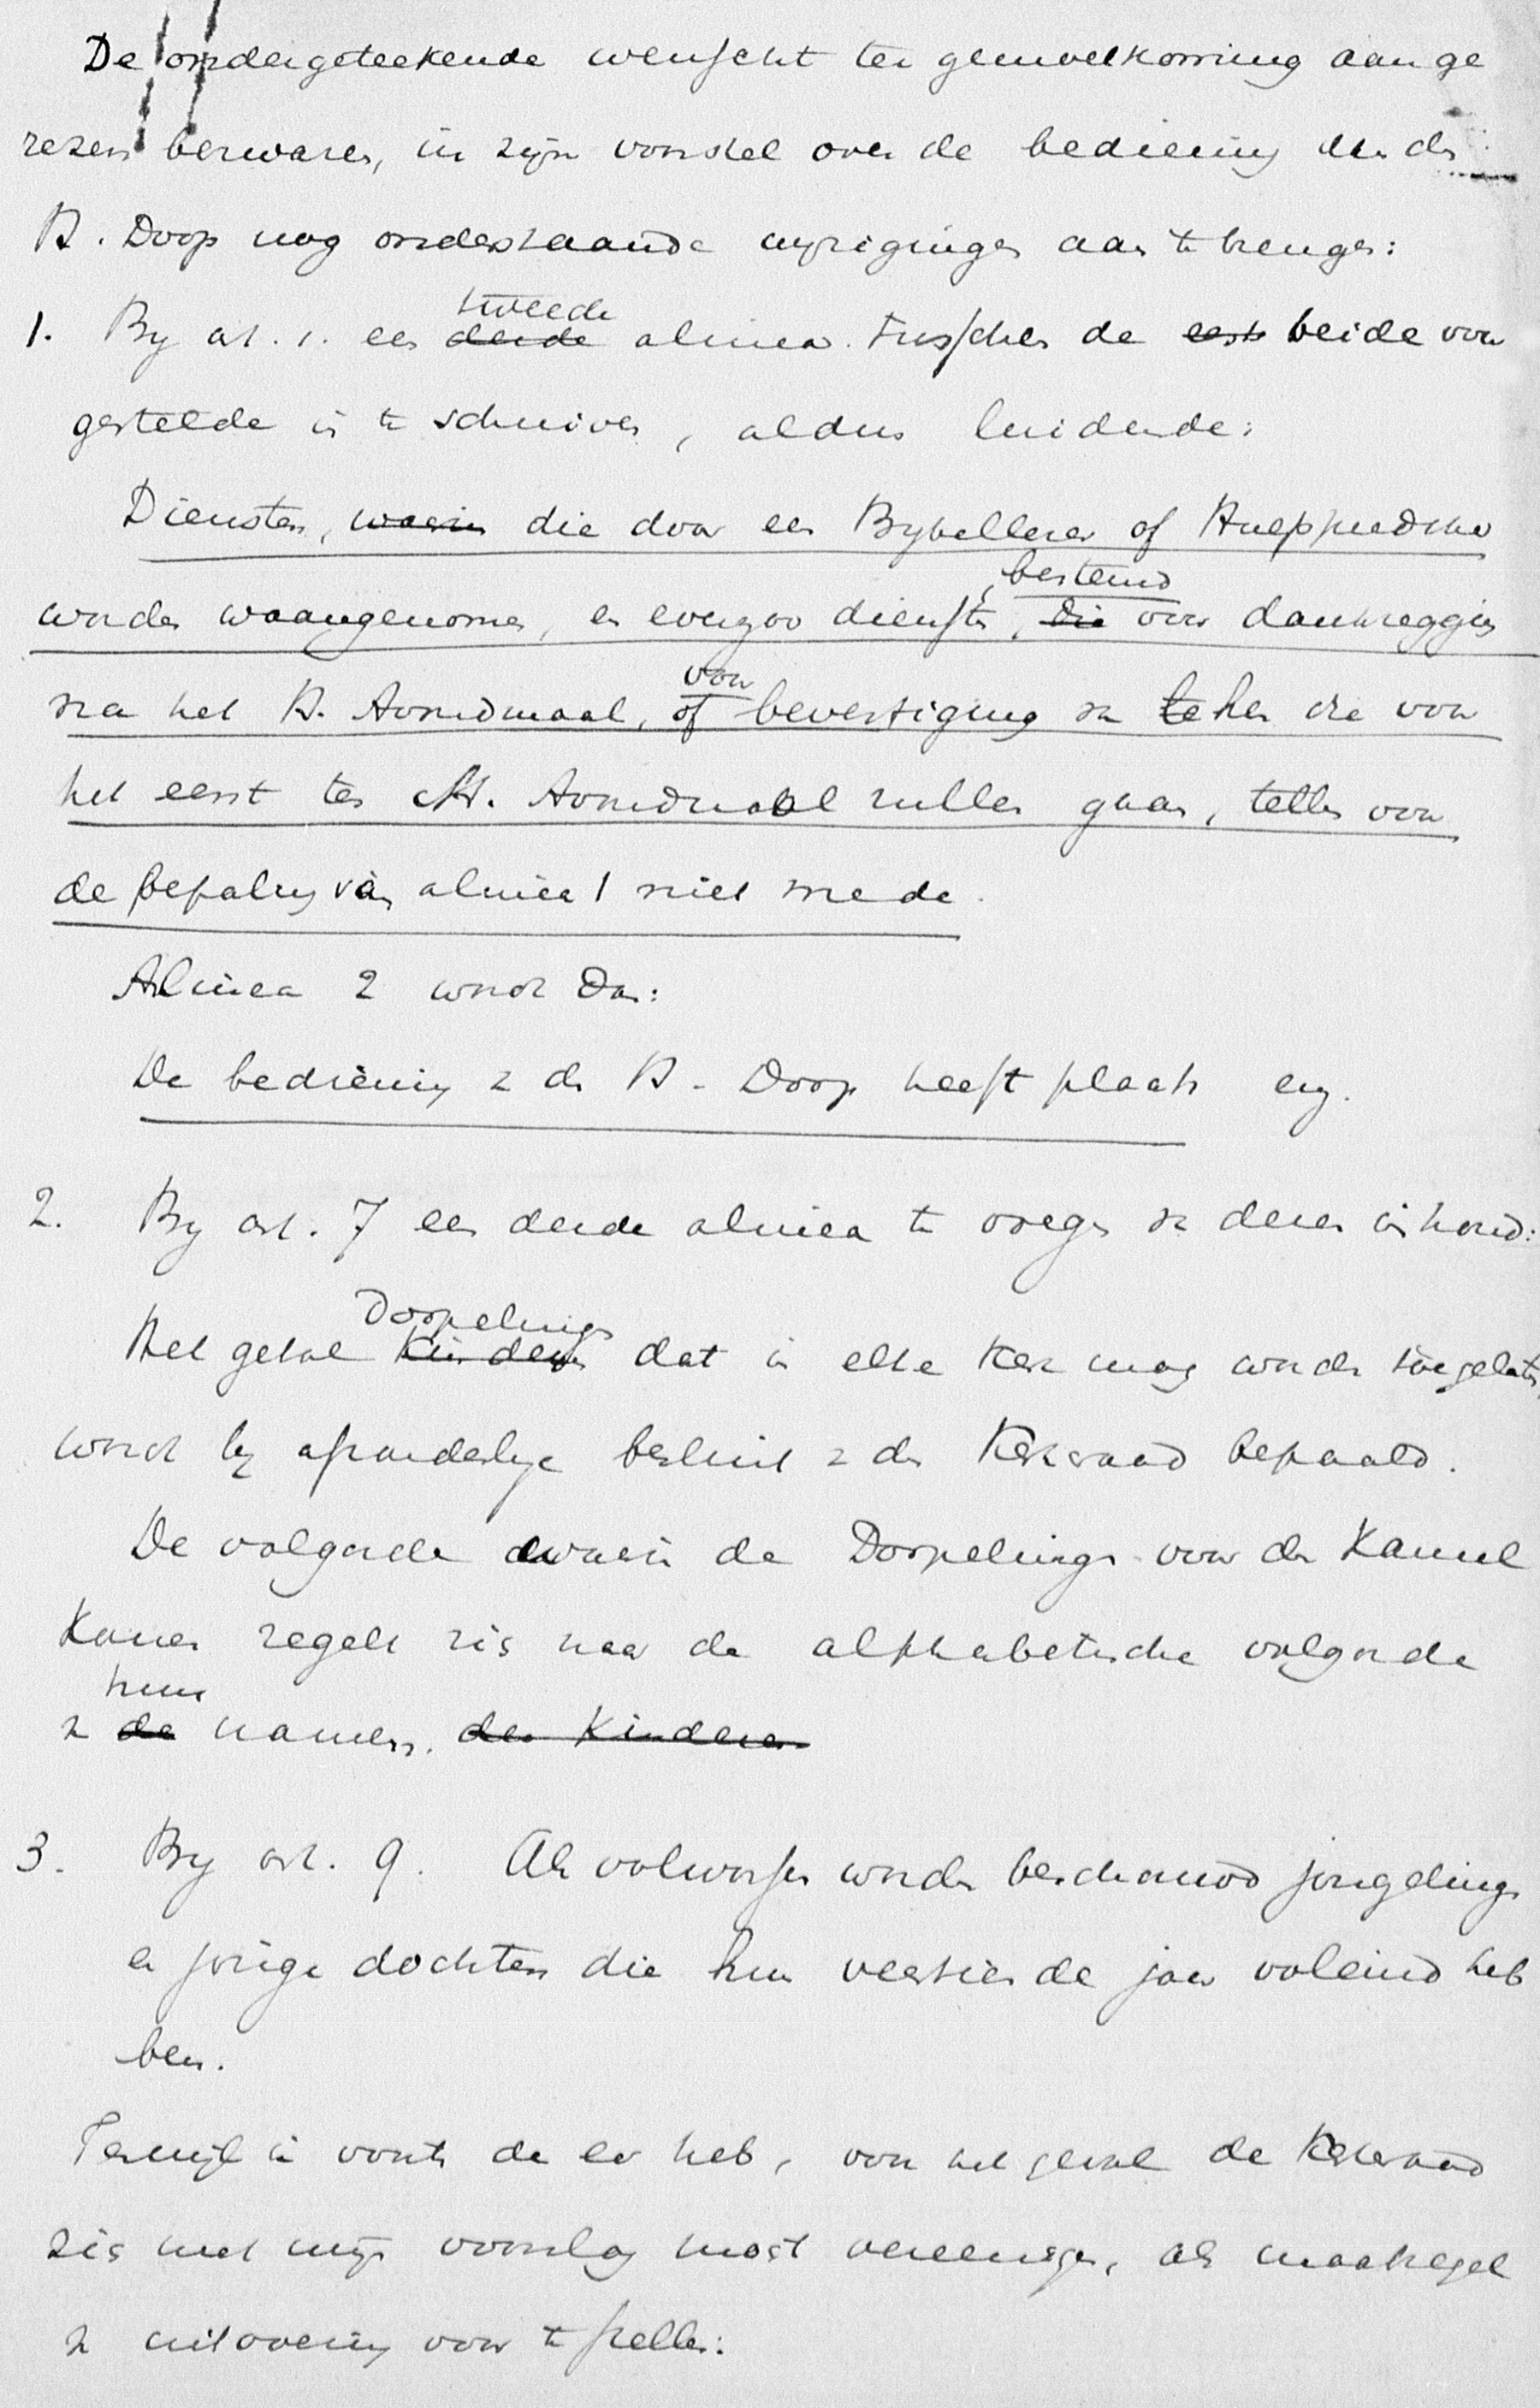 De ondergeteekende wenscht ter gemoetkoming aan ge
rezen bezwaren, in zijn voorstel over de bediening van den
H. Doop nog onderstaande wijzigingen aan te brengen:
1. By art. 1. een derde tweede alinea tusschen de eerste beide voor
gestelde in te schuiven, aldus luidende:
Diensten, waarin die door een Bybellezer of Hulpprediker
worden waargenomen, en evenzoo diensten, die bestemd voor dankzegging
na het H. Avondmaal, of voor bevestiging van leden die voor
het eerst ten H. Avondmaal zullen gaan, tellen voor
de bepaling van alinea 1 niet mede.
Alinea 2 wordt dan:
De bediening van den H. Doop heeft plaats enz.
2. By art. 7 een derde alinea te voegen van dezen inhoud:
Het getal kinderen Doopelingen dat in elke Kerk mag worden toegelaten,
wordt by afzonderlyk besluit van den Kerkeraad bepaald.
De volgorde waarin de Doopelingen voor den Kansel
komen regelt zich naar de alphabetische volgorde
van de hun namen. der Kinderen
3. By art. 9. Als volwassen worden beschouwd jongelingen
en jonge dochters die hun veertiende jaar voleind heb
ben.
Terwijl ik voorts de eer heb, voor het geval de Kerkeraad
zich met mijn voorslag mocht vereenigen, als maatregel
van uitvoering voor te stellen: